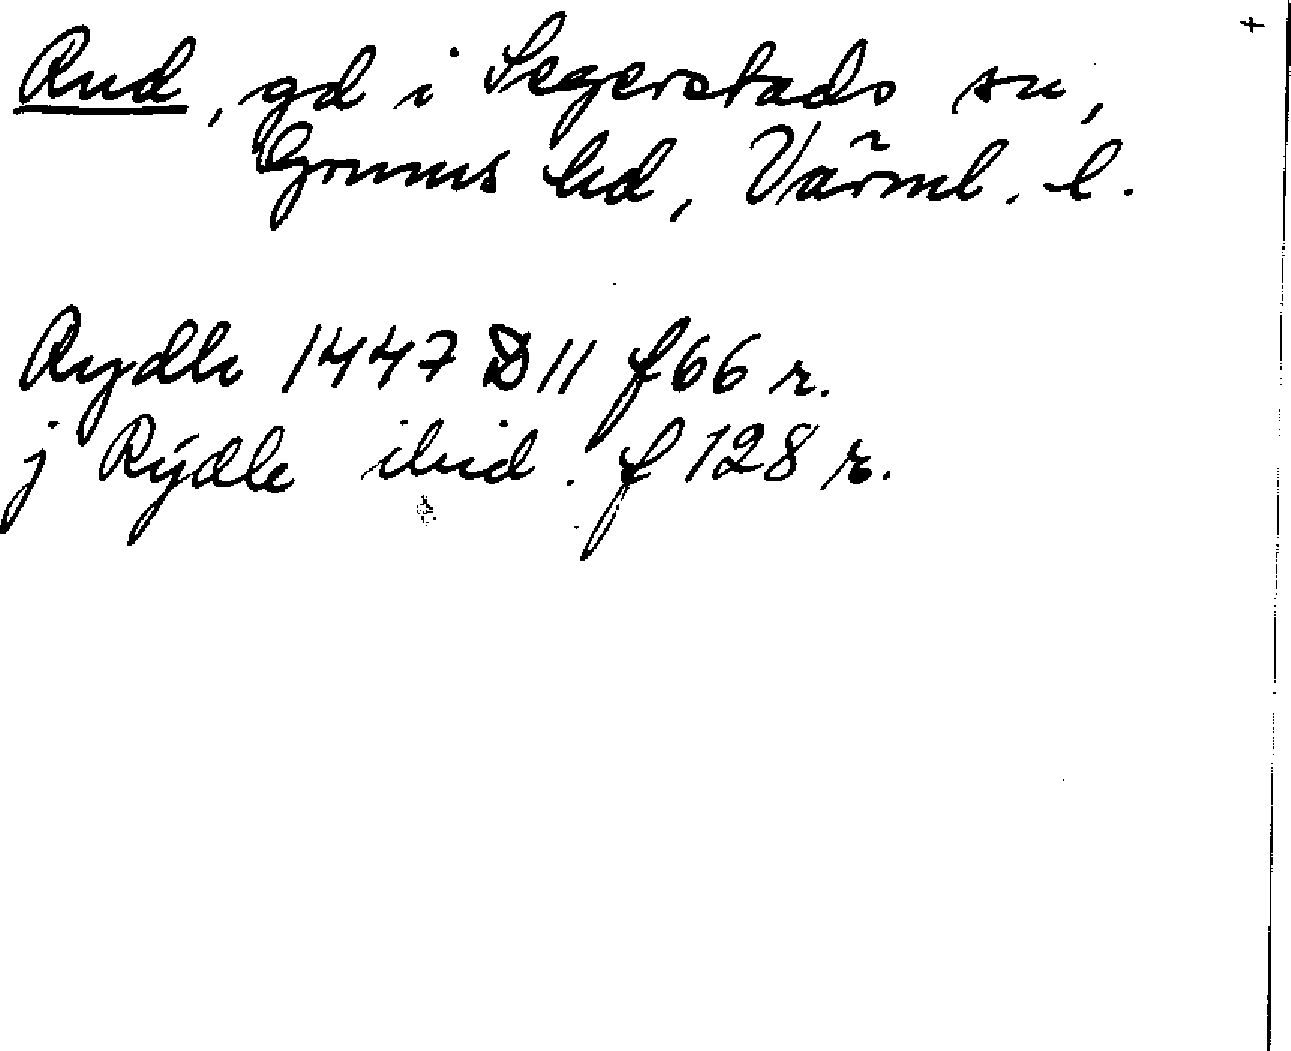 Rud, gd i Segerstads sn,
Grums hd, Värml. l.
Rydh 1447 D 11 f 66 r.
j Rÿdh ibid. f 128 r.